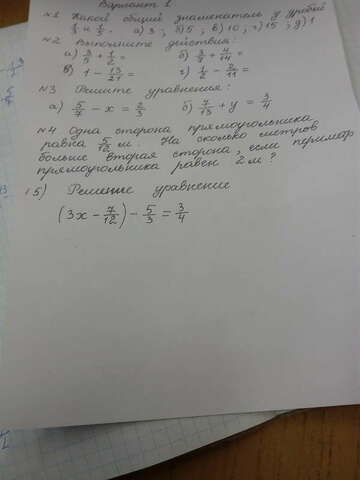 Вариант 1
№1 Какой общий знаменатель у дробей
и а) 3; б) 5; в) 10; г) 15; д) 1
№2 Выполните действия:
а) 3/5 + 1/2 = б) 3/7 + 4/14 =
в) 1 - 13/21 = г) 1/2 - 2/11 =
№3 Решите уравнения:
а) 5/7 - x = 2/3 б) 7/13 + y = 3/4
№4 Одна сторона прямоугольника
равна 5/12 м. На сколько метров
больше вторая сторона, если периметр
прямоугольника равен 2 м?
5) Решение уравнение
(3x - 7/12) - 5/3 = 3/4